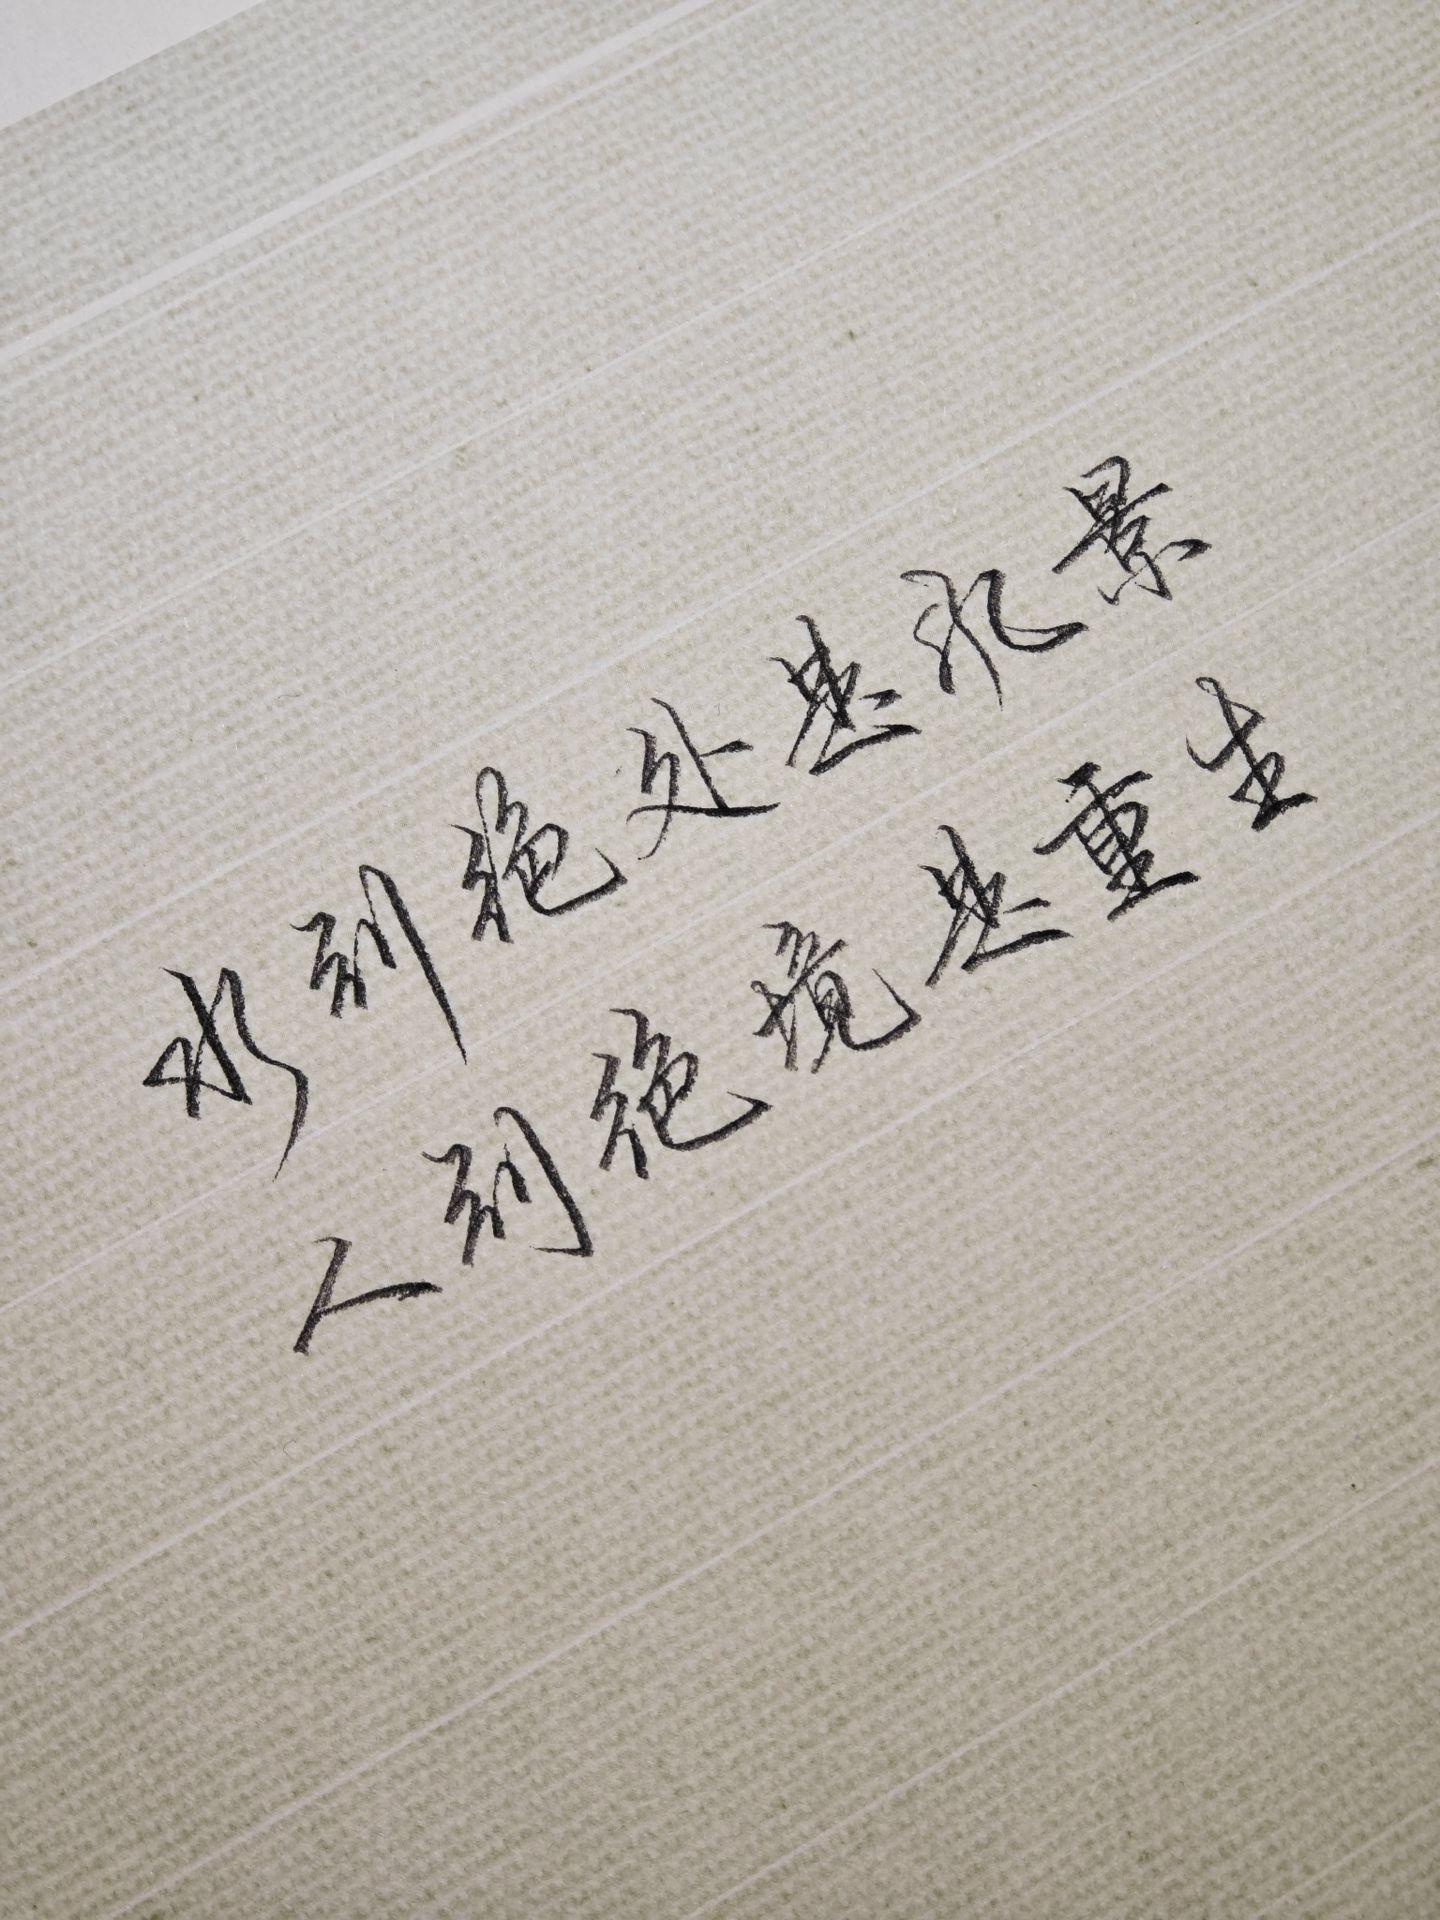 水到绝处是风景
人到绝境是重生